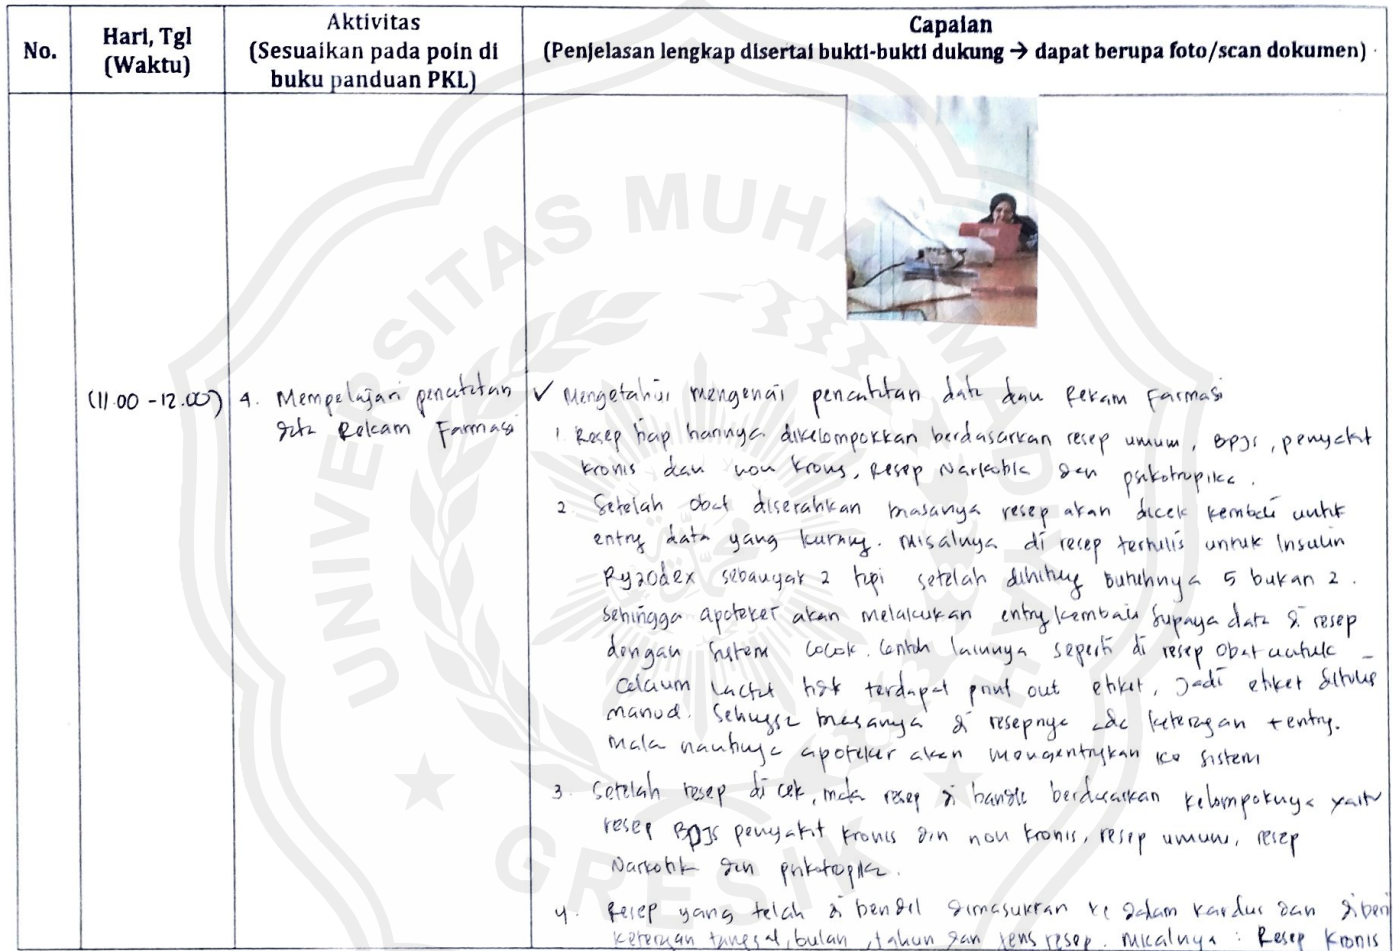 No.
Hari, Tgl
(Waktu)
Aktivitas
(Sesuaikan pada poin di
buku panduan PKL)
Capaian
(Penjelasan lengkap disertai bukti-bukti dukung → dapat berupa foto/scan dokumen)
(11.00 - 12.00)
4. Mempelajari pencatatan
data Rekam Farmasi
✓ Mengetahui mengenai pencatatan data dan Rekam Farmasi
1. Resep tiap harinya dikelompokkan berdasarkan resep umum, BPJS, penyakit
kronis dan non kronis, Resep Narkotika dan psikotropika.
2. Setelah obat diserahkan biasanya resep akan dicek kembali untuk
entry data yang kurang. misalnya di resep tertulis untuk Insulin
Ryzodex sebanyak 2 tapi setelah dihitung butuhnya 5 bukan 2.
Sehingga apoteker akan melakukan entry kembali supaya data di resep
dengan sistem cocok. Contoh lainnya seperti di resep obat untuk
Calcium Lactat tidak terdapat print out etiket, Jadi etiket ditulis
manual. Sehingga biasanya di resepnya ada keterangan + entry.
Maka nantinya apoteker akan mengentrykan ke sistem
3. Setelah resep di cek, maka resep di bandle berdasarkan kelompoknya yaitu
resep BPJS penyakit kronis dan non kronis, resep umum, resep
Narkotik dan psikotropika.
4. Resep yang telah di bendel dimasukkan ke dalam kardus dan diberi
keterangan tanggal, bulan, tahun dan jenis resep. misalnya : Resep Kronis
UNIVERSITAS MUHAMMADIYAH
GRESIK